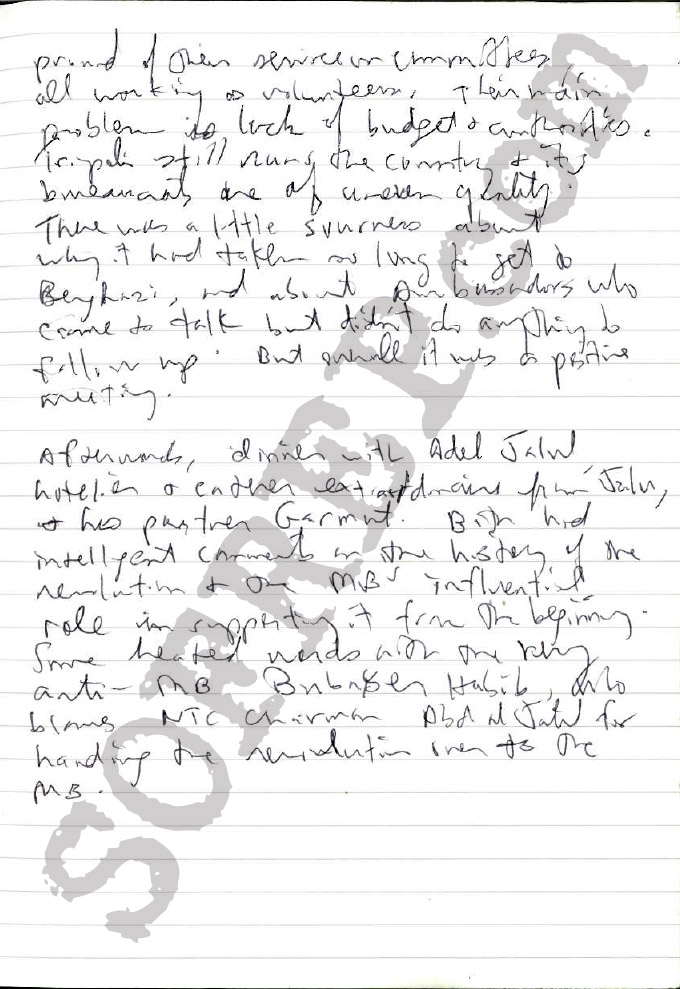 proud of their service on committees,
all working as volunteers. Their main
problem is lack of budget & authorities.
Tripoli still runs the country & its
bureaucrats are of uneven quality.
There was a little sourness about
why it had taken so long to get to
Benghazi, and about Ambassadors who
came to talk but didn't do anything to
follow up. But overall it was a positive
meeting.
Afterwards, dinner with Adel Jalul
hotelier & caterer extraordinaire from Jalu,
& his partner
Both had
intelligent comments on the history of the
revolution & the MB's influential
role in supporting it from the beginning.
Some heated words with the very
anti-MB Habib, who
blames NTC Chairman Abd al Jalil for
handing the revolution over to the
MB.
SOFREP.com